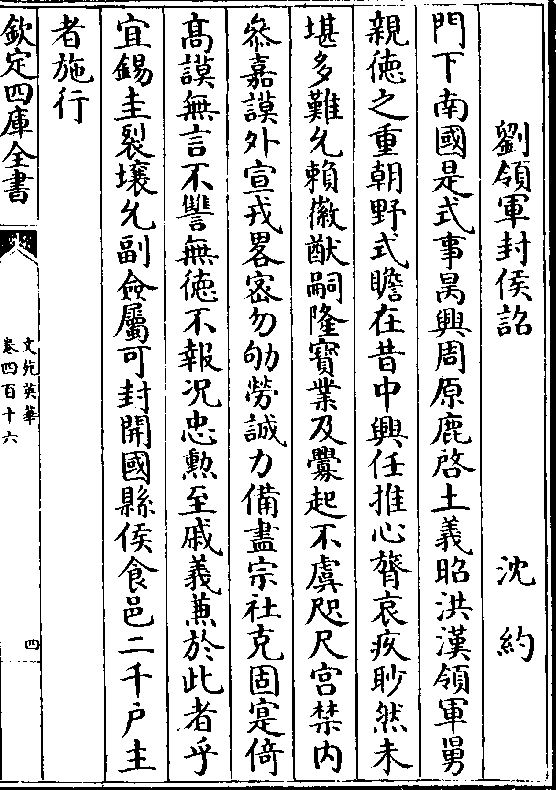 劉領軍封侯詔　沈約
門下南國是式事昺興周原鹿啓土義昭洪漢領軍舅
親徳之重朝野式瞻在昔中興任推心膂哀疚眇然未
堪多難允賴徽猷嗣隆寳業及釁起不虞咫尺宮禁内
叅嘉謨外宣戎畧宻勿劬勞誠力備盡宗社克固寔倚
髙謨無言不讐無徳不報况忠勲至戚義兼於此者乎
宜錫圭裂壤允副僉屬可封開國縣侯食邑二千户主
者施行
欽定四庫全書
文苑英華
卷四百十六
四